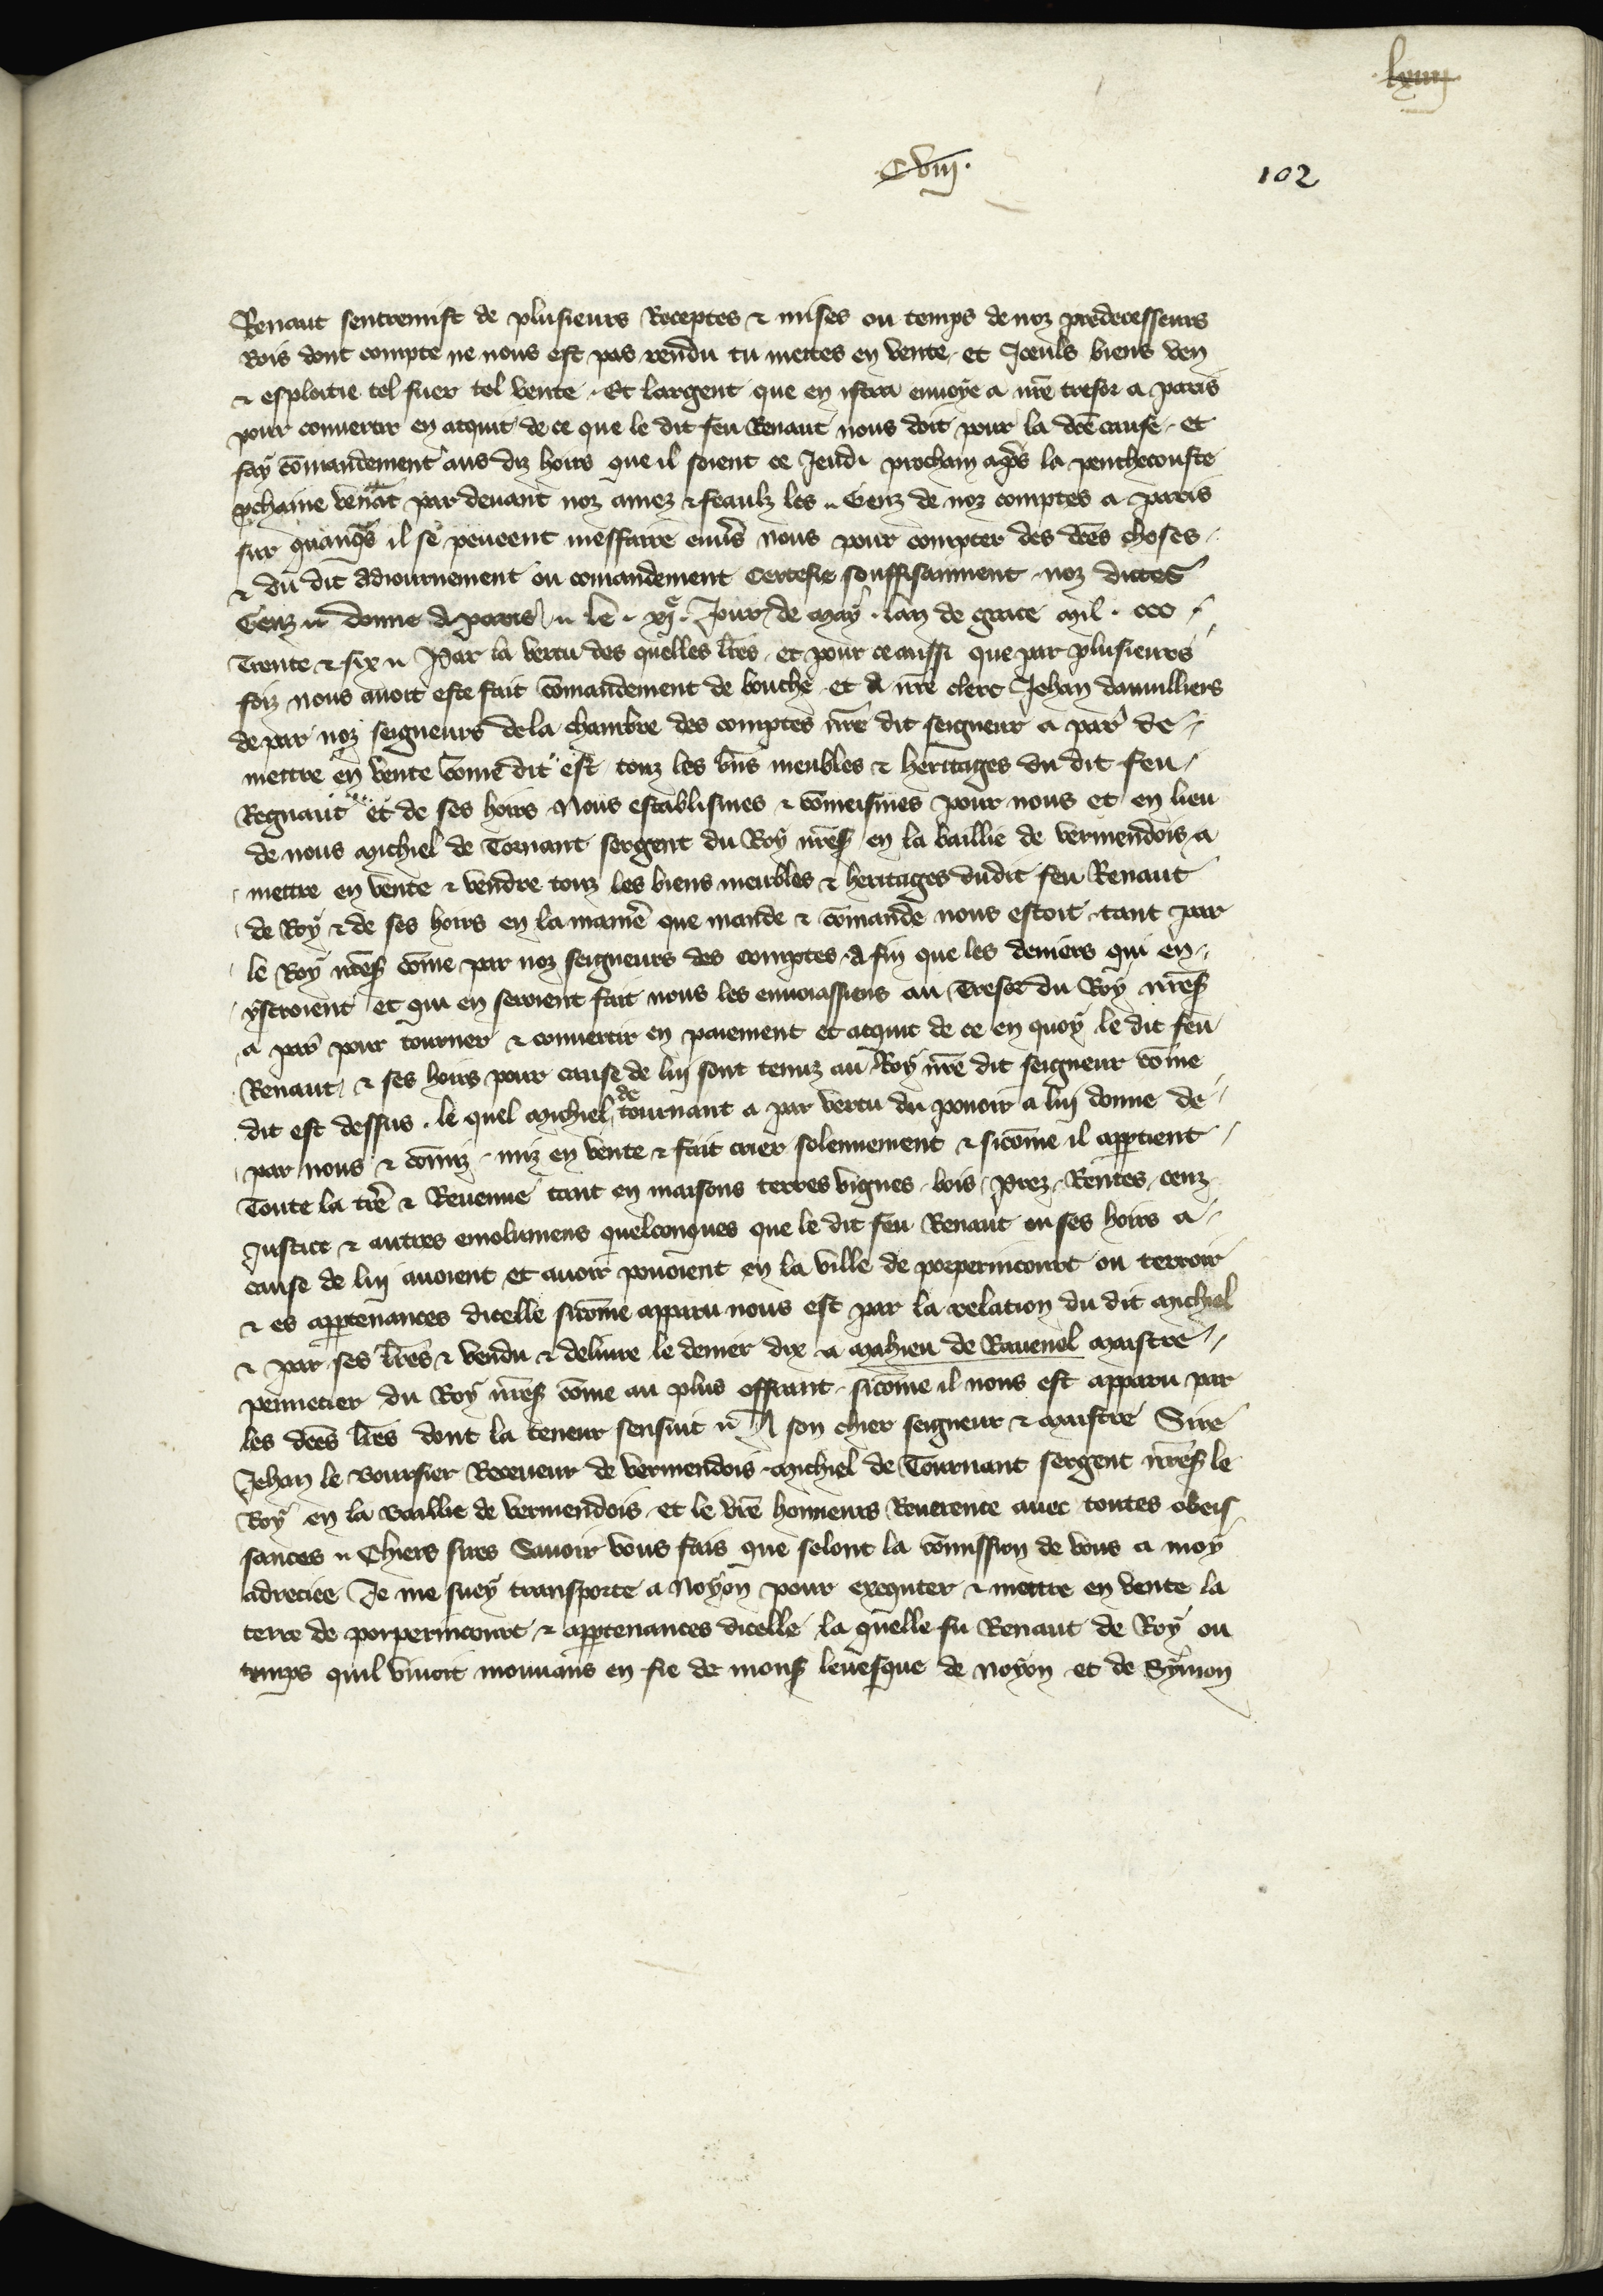 lxiiij
.C viij.
102
Renaut sentremist de plusieurs Receptes & mises ou temps de noz predecesseurs
Rois dont compte ne nous est pas rendu tu mettes en vente et Iceuls biens ven
& esploitie tel fuer tel vente . Et largent que en istra envoye a nre tresor a paris
pour convertir en acquit de ce que le dit feu Renaut nous doit pour la dce cause . et
fay comandement aus diz hoirs que il soient ce Jeudi prochain apres la penthecouste
pchaine venat par devant noz amez & feaulz les .. Genz de noz comptes a paris
sur quanqs il se pevent meffaire envs nous pour compter des dces choses
& du dit adiournement ou comandement Certefie souffisamment noz dictes
Genz .. donne a paris .. le . xj.e Jour de may . lan de grace mil . ccc
Trente & six .. Par la vertu des quelles lres . et pour ce aussi que par plusieurs
foiz nous avoit este fait comandement de bouche et a nre clerc Jehan danvilliers
de par noz seigneurs de la chambre des comptes nre dit seigneur a par de
mettre en vente come dit est touz les bns meubles & heritages du dit feu
Regnaut et de ses hoirs Nous establismes & comeismes pour nous et en lieu
de nous Michiel de Tornant sergent du Roy nres en la baillie de vermendois a
mettre en vente & vendre touz les biens meubles & heritages dudit feu Renaut
de Roy & de ses hoirs en la manie que mande & comande nous estoit tant par
le Roy nres come par noz seigneurs des comptes . A fin que les deniers qui en
ystroient et qui en seroient fait nous les envoiassiens au Tresor du Roy nres
a par pour tourner & convertir en paiement et acquit de ce en quoy le dit feu
Renaut & ses hoirs pour cause de lui sont tenuz au Roy nre dit seigneur come
dit est dessus . le quel Michiel de tournant a par vertu du pouoir a lui donne de
par nous & comiz . miz en vente & fait crier solennement & sicome il appartient
Toute la tre & Revenue tant en maisons terres vignes . bois . Prez . Rentes . cenz
Justice & autres emolumens quelconques que le dit feu Renaut ou ses hoirs a
cause de lui avoient et avoir povoient en la ville de porpernicourt ou terroir
& es appartenances dicelle sicome apparu nous est par la relation du dit Michiel
& par ses lres & vendu & delivre le denier dix a Mahieu de Ravenel Maistre
pennetier du Roy nres come au plus offrant . sicome il nous est apparu par
les dces lres dont la teneur sensuit .. A son chier seigneur & Maistre Sire
Jehan le Boursier Receveur de vermendois Michiel de Tournant sergent nres le
Roy en la Baillie de vermendois et le vre honneurs Reverence avec toutes obeis
sances .. Chiers sires Savoir vous fais que solont la comission de vous a moy
adreciee Je me suey transporte a Noyon pour exequter & mettre en vente la
terre de porpernicourt & appartenances dicelle la quelle fu Renaut de Roy ou
temps quil vivoit mouvans en fie de mons levesque de Noyon et de Symon